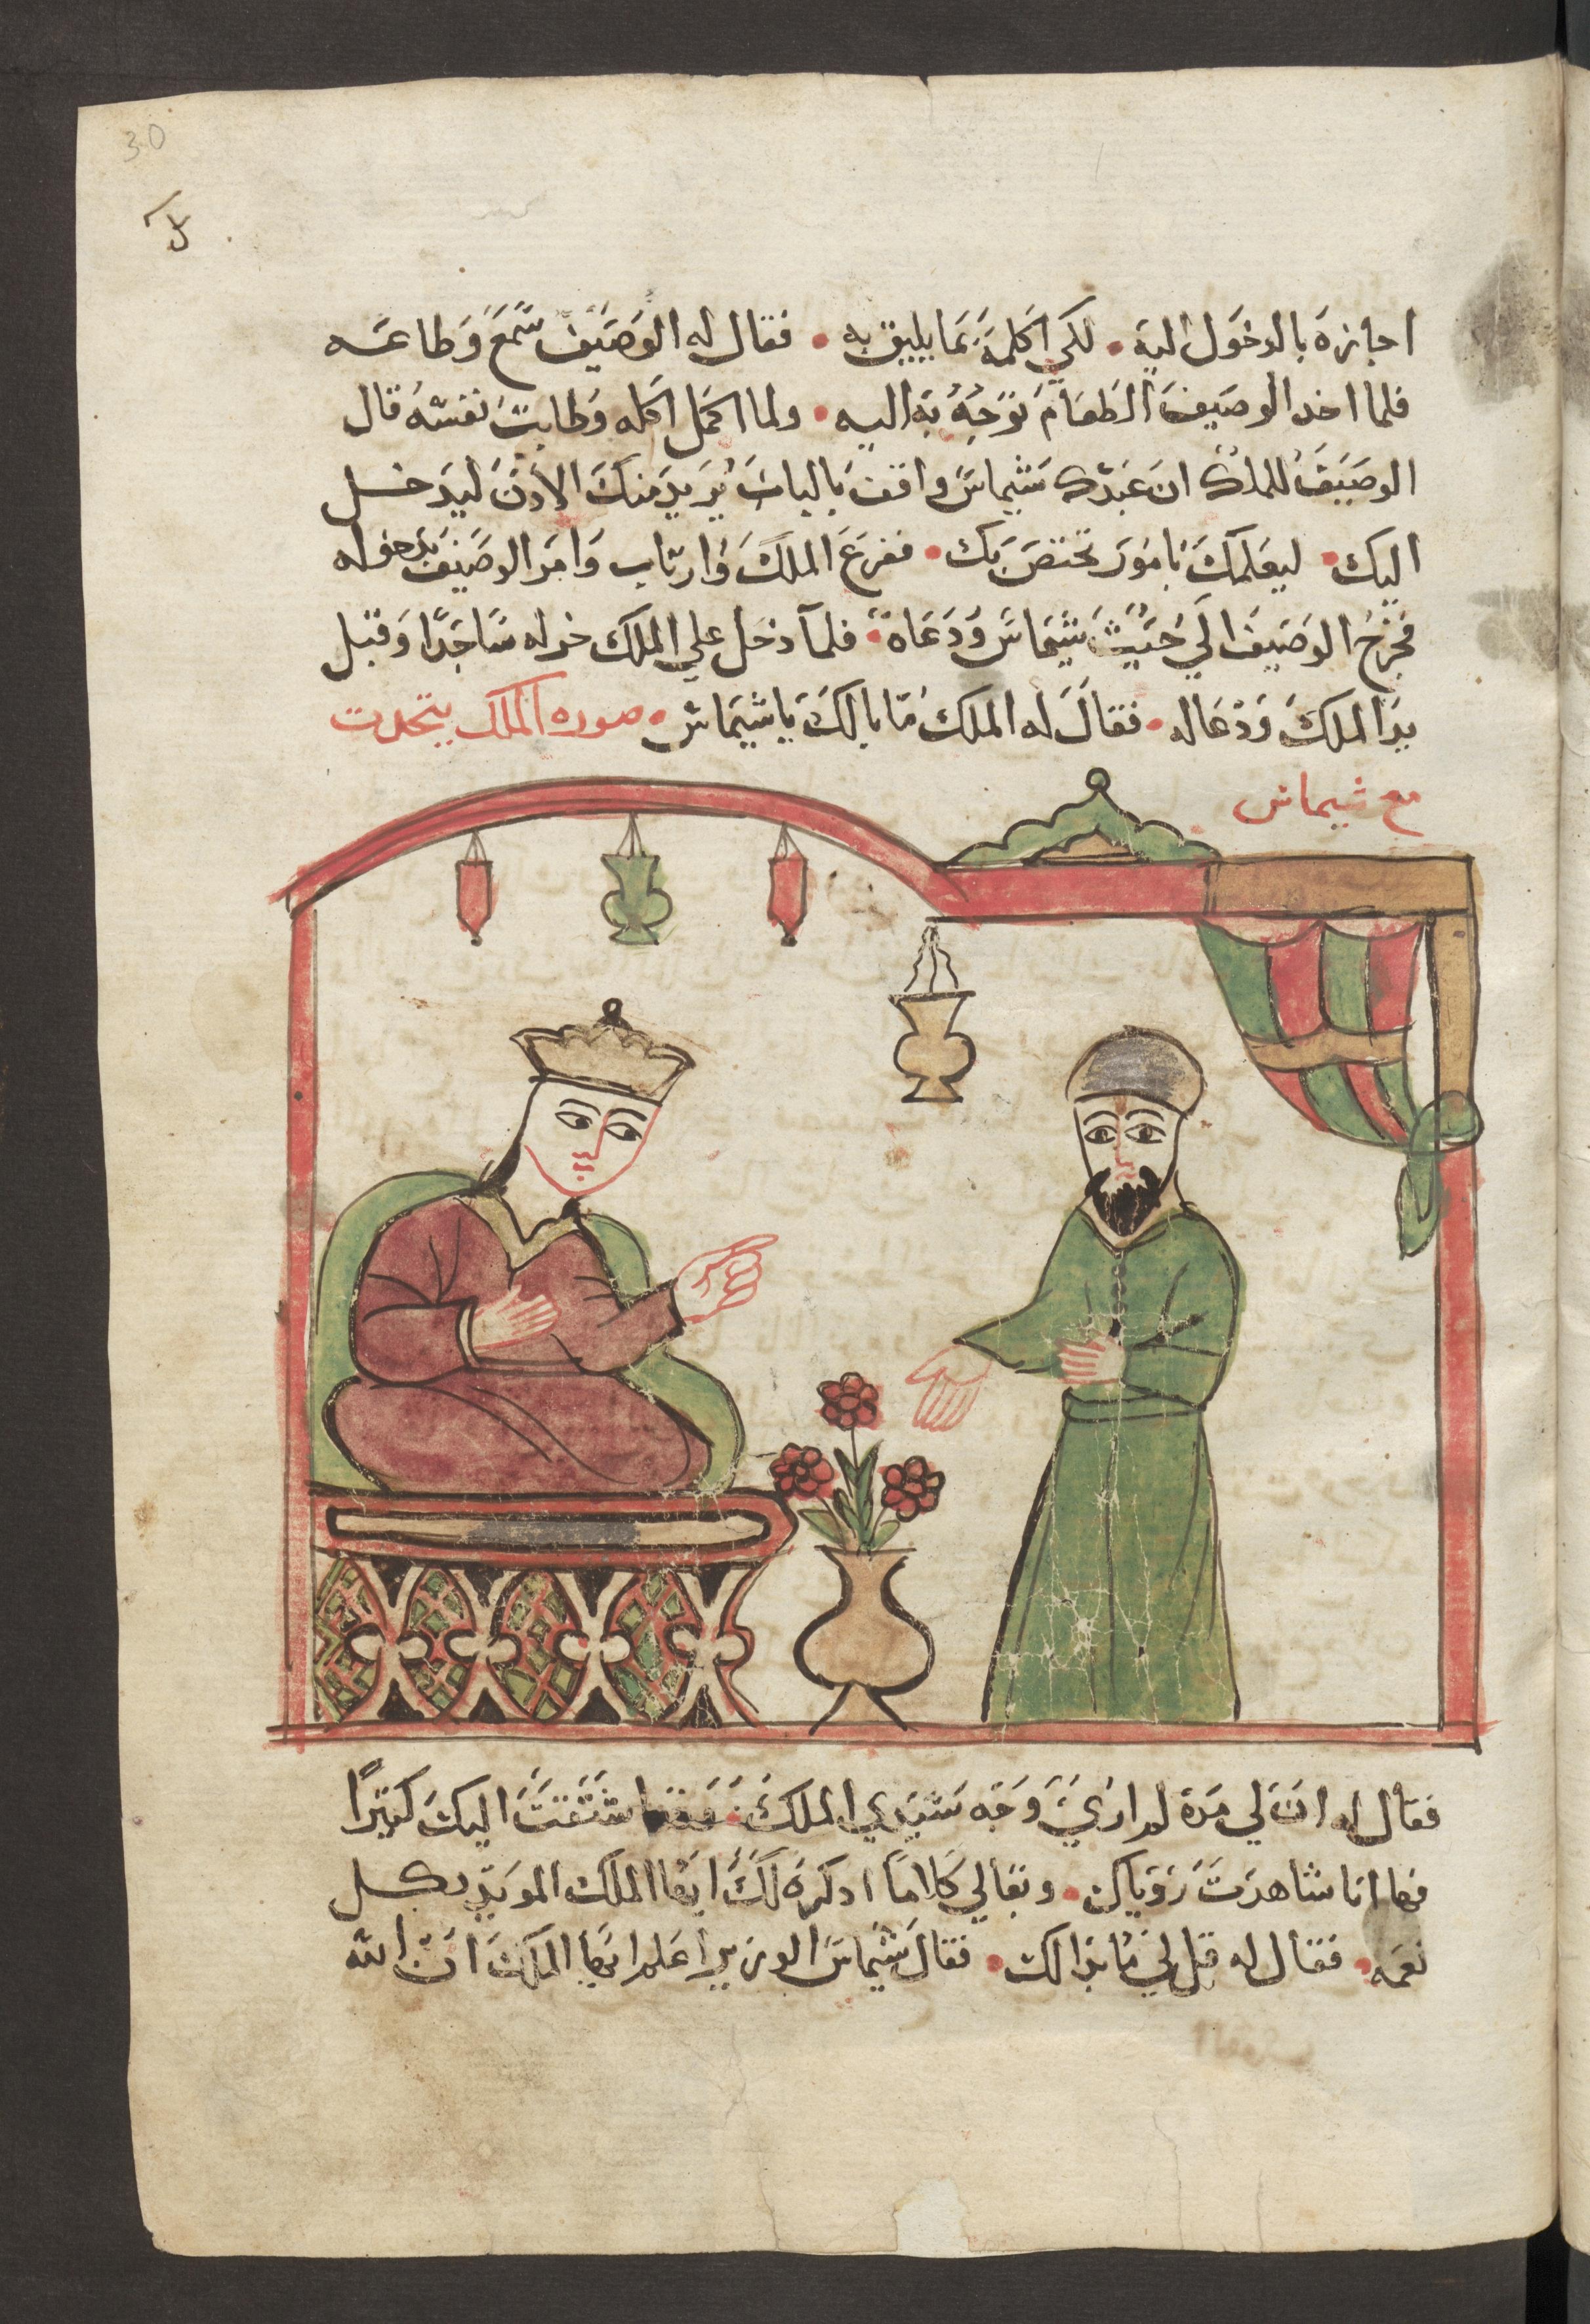 30
ل
اجازة بالدخول اليه • لكي اكلمه بما يليق به • فقال له الوصيف سمع وطاعه
فلما اخد الوصيف الطعام توجه به اليه • ولما اكمل اكله وطابت نفسه قال
الوصيف للملك ان عبدك شيماس واقف بالباب يريد منك الادن ليدخل
اليك • ليعلمك بامور تختص بك • ففزع الملك وارتاب وامر الوصيف بدخوله
فخرج الوصيف الي حيث شيماس ودعاه • فلما دخل علي الملك خر له ساجدا وقبل
يد الملك ودعا له • فقال له الملك ما بالك يا شيماس • صوره الملك يتحدت
مع شيماس
فقال له ان لي مدة لم اري وجه سيدي الملك • وقد اشتقت اليك كتيرا
فها انا شاهدت رؤياك • وبقا لي كلاما ادكره لك ايها الملك المويد بكل
نعمه • فقال له قل لي ما بدا لك • فقال شيماس الوزير اعلم ايها الملك ان الله